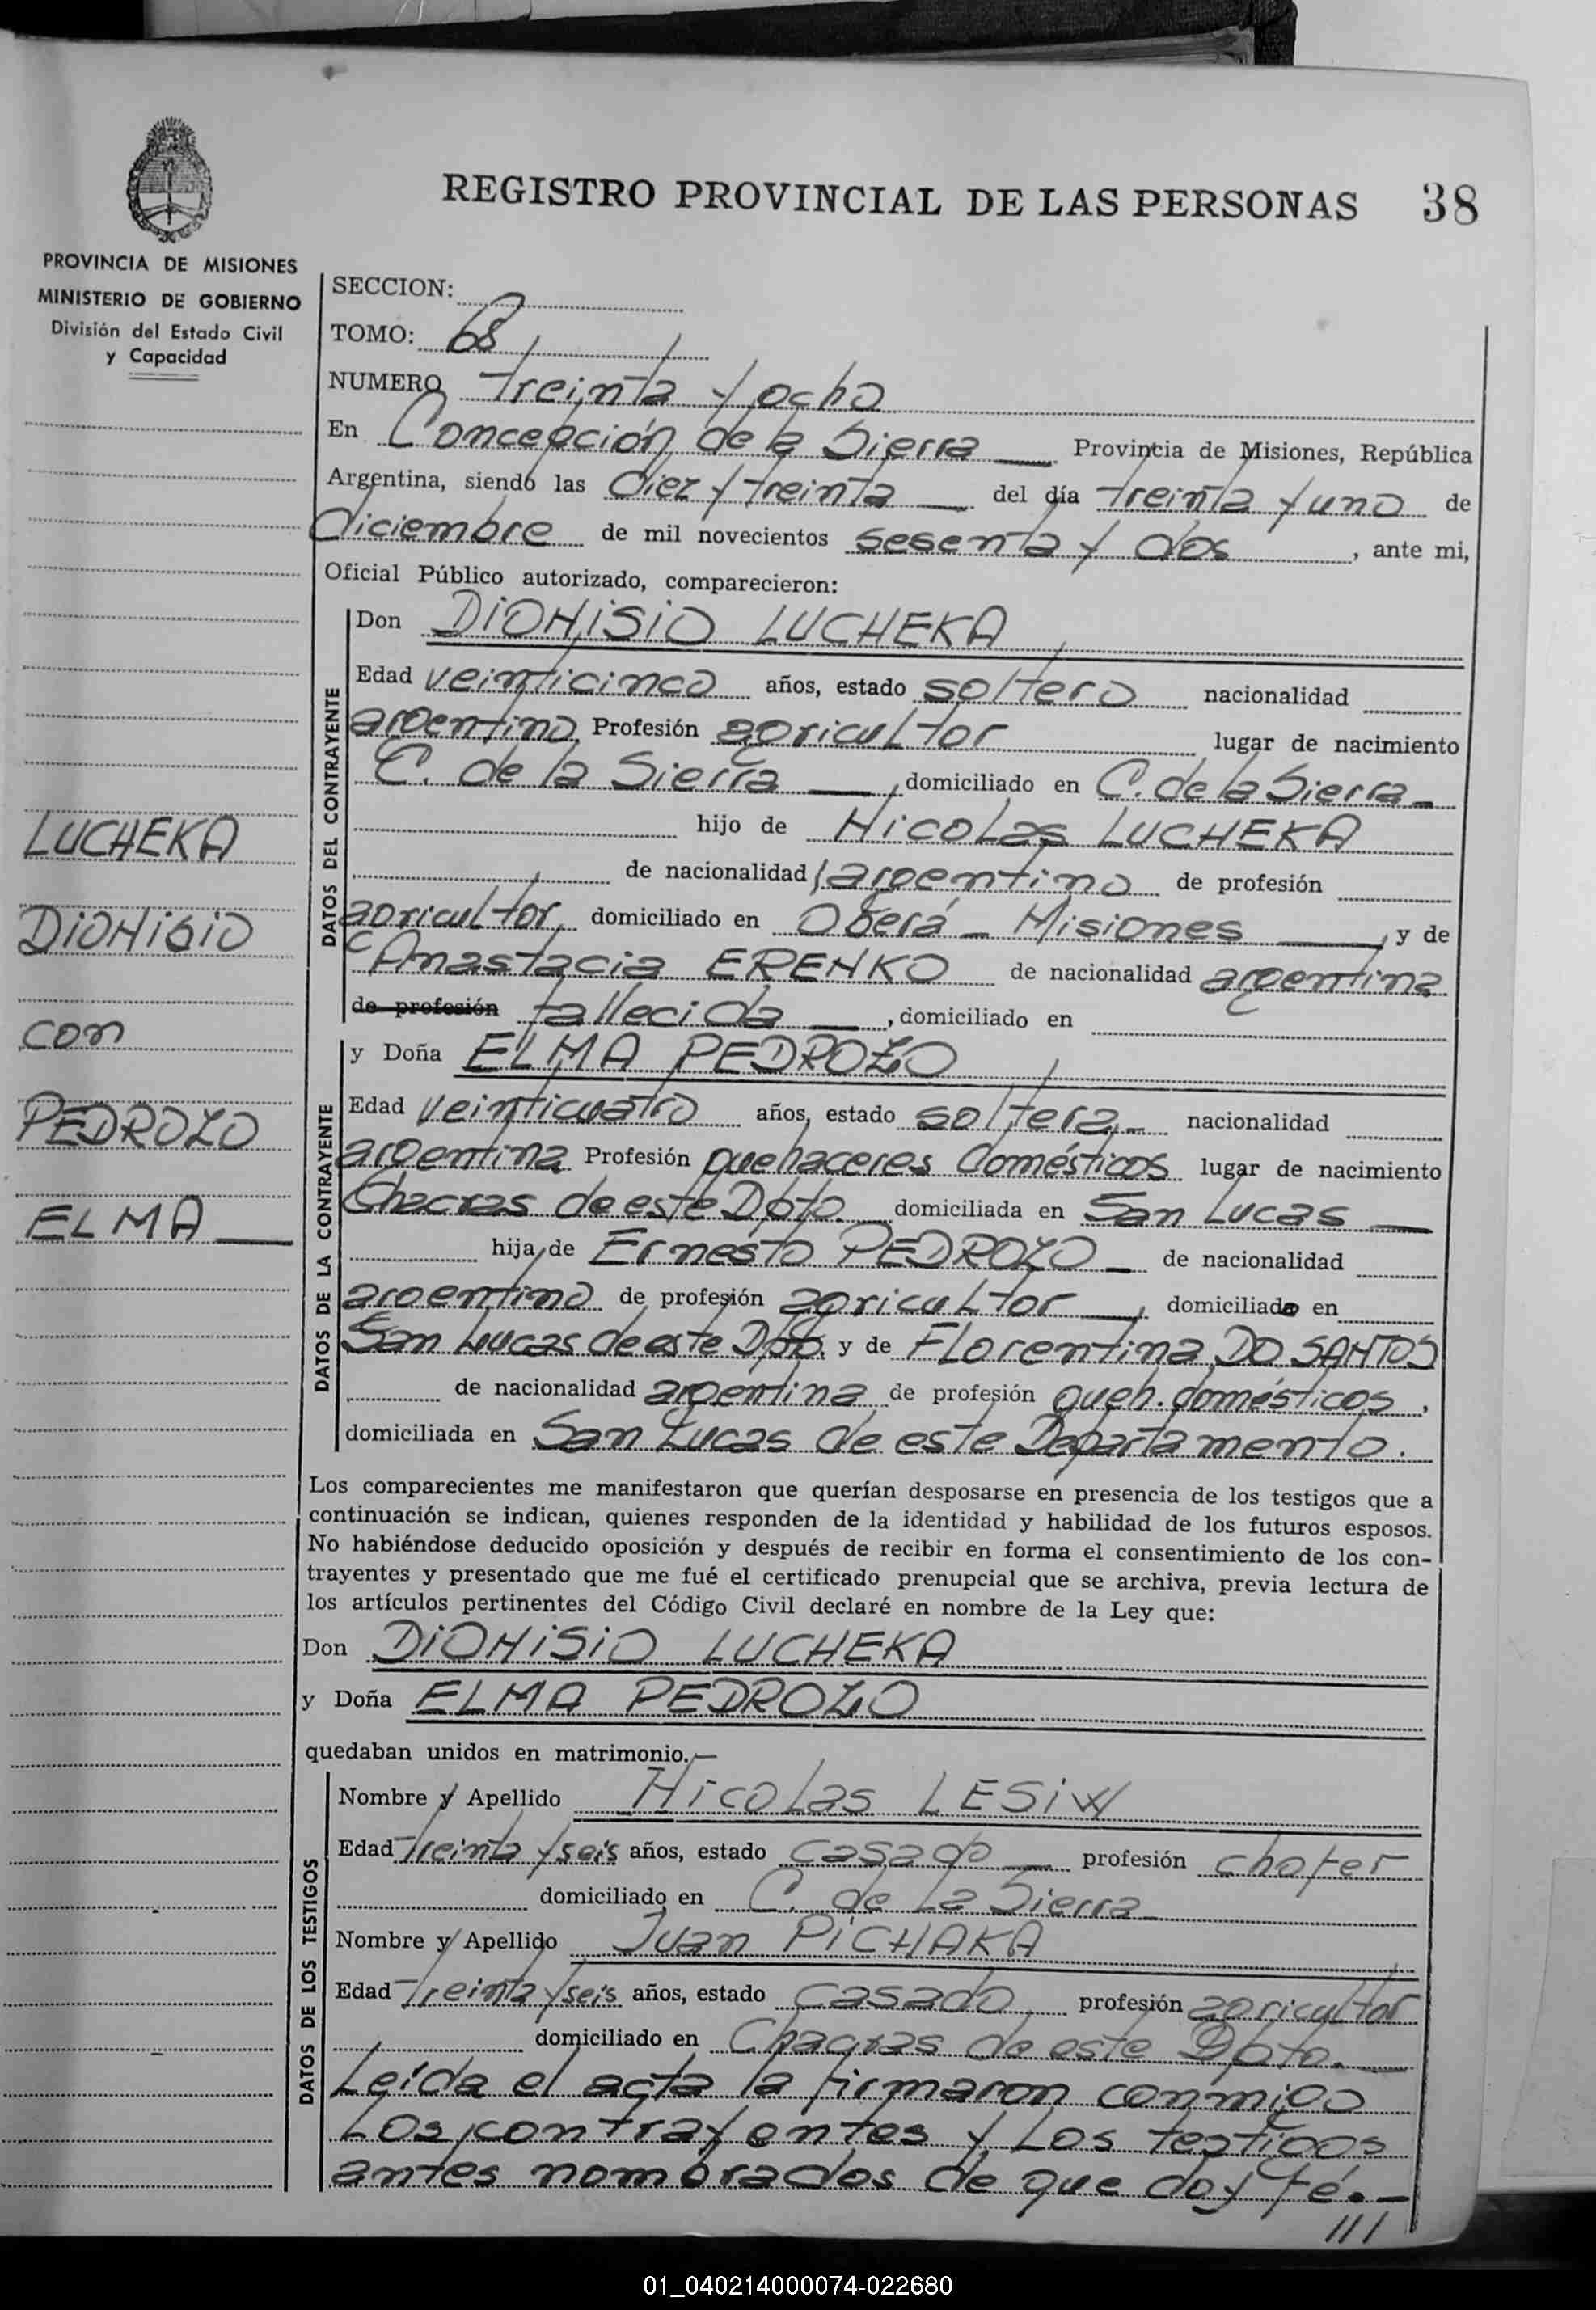 REGISTRO PROVINCIAL DE LAS PERSONAS 38
PROVINCIA DE MISIONES
MINISTERIO DE GOBIERNO
División del Estado Civil
y Capacidad
LUCHEKA
DIONISIO
con
PEDROZO
ELMA
SECCION:
TOMO: 68
NUMERO treinta y ocho
En Concepción de la Sierra Provincia de Misiones, República
Argentina, siendo las diez y treinta del día treinta y uno de
diciembre de mil novecientos sesenta y dos, ante mi,
Oficial Público autorizado, comparecieron:
DATOS DEL CONTRAYENTE
Don DIONISIO LUCHEKA
Edad veinticinco años, estado soltero nacionalidad
argentino Profesión agricultor lugar de nacimiento
C. de la Sierra, domiciliado en C. de la Sierra
hijo de Nicolas LUCHEKA
de nacionalidad argentino de profesión
agricultor, domiciliado en Oberá - Misiones, y de
Anastacia ERENKO de nacionalidad argentina
de profesión fallecida, domiciliado en
DATOS DE LA CONTRAYENTE
y Doña ELMA PEDROZO
Edad veinticuatro años, estado soltera nacionalidad
argentina Profesión quehaceres domésticos lugar de nacimiento
Chacras de este Dpto. domiciliada en San Lucas
hija de Ernesto PEDROZO de nacionalidad
argentino de profesión agricultor, domiciliado en
San Lucas de este Dpto. y de Florentina DO SANTOS
de nacionalidad argentina de profesión queh. domésticos,
domiciliada en San Lucas de este Departamento.
Los comparecientes me manifestaron que querían desposarse en presencia de los testigos que a
continuación se indican, quienes responden de la identidad y habilidad de los futuros esposos.
No habiéndose deducido oposición y después de recibir en forma el consentimiento de los con-
trayentes y presentado que me fué el certificado prenupcial que se archiva, previa lectura de
los artículos pertinentes del Código Civil declaré en nombre de la Ley que:
Don DIONISIO LUCHEKA
y Doña ELMA PEDROZO
quedaban unidos en matrimonio.—
DATOS DE LOS TESTIGOS
Nombre y Apellido Nicolas LESIW
Edad treinta y seis años, estado casado profesión chofer
domiciliado en C. de La Sierra
Nombre y Apellido Juan PICHAKA
Edad treinta y seis años, estado casado profesión agricultor
domiciliado en Chacras de este Dpto.
Leída el acta la firmaron conmigo
Los contrayentes y Los testigos
antes nombrados de que doy fé.-
///
01_040214000074-022680